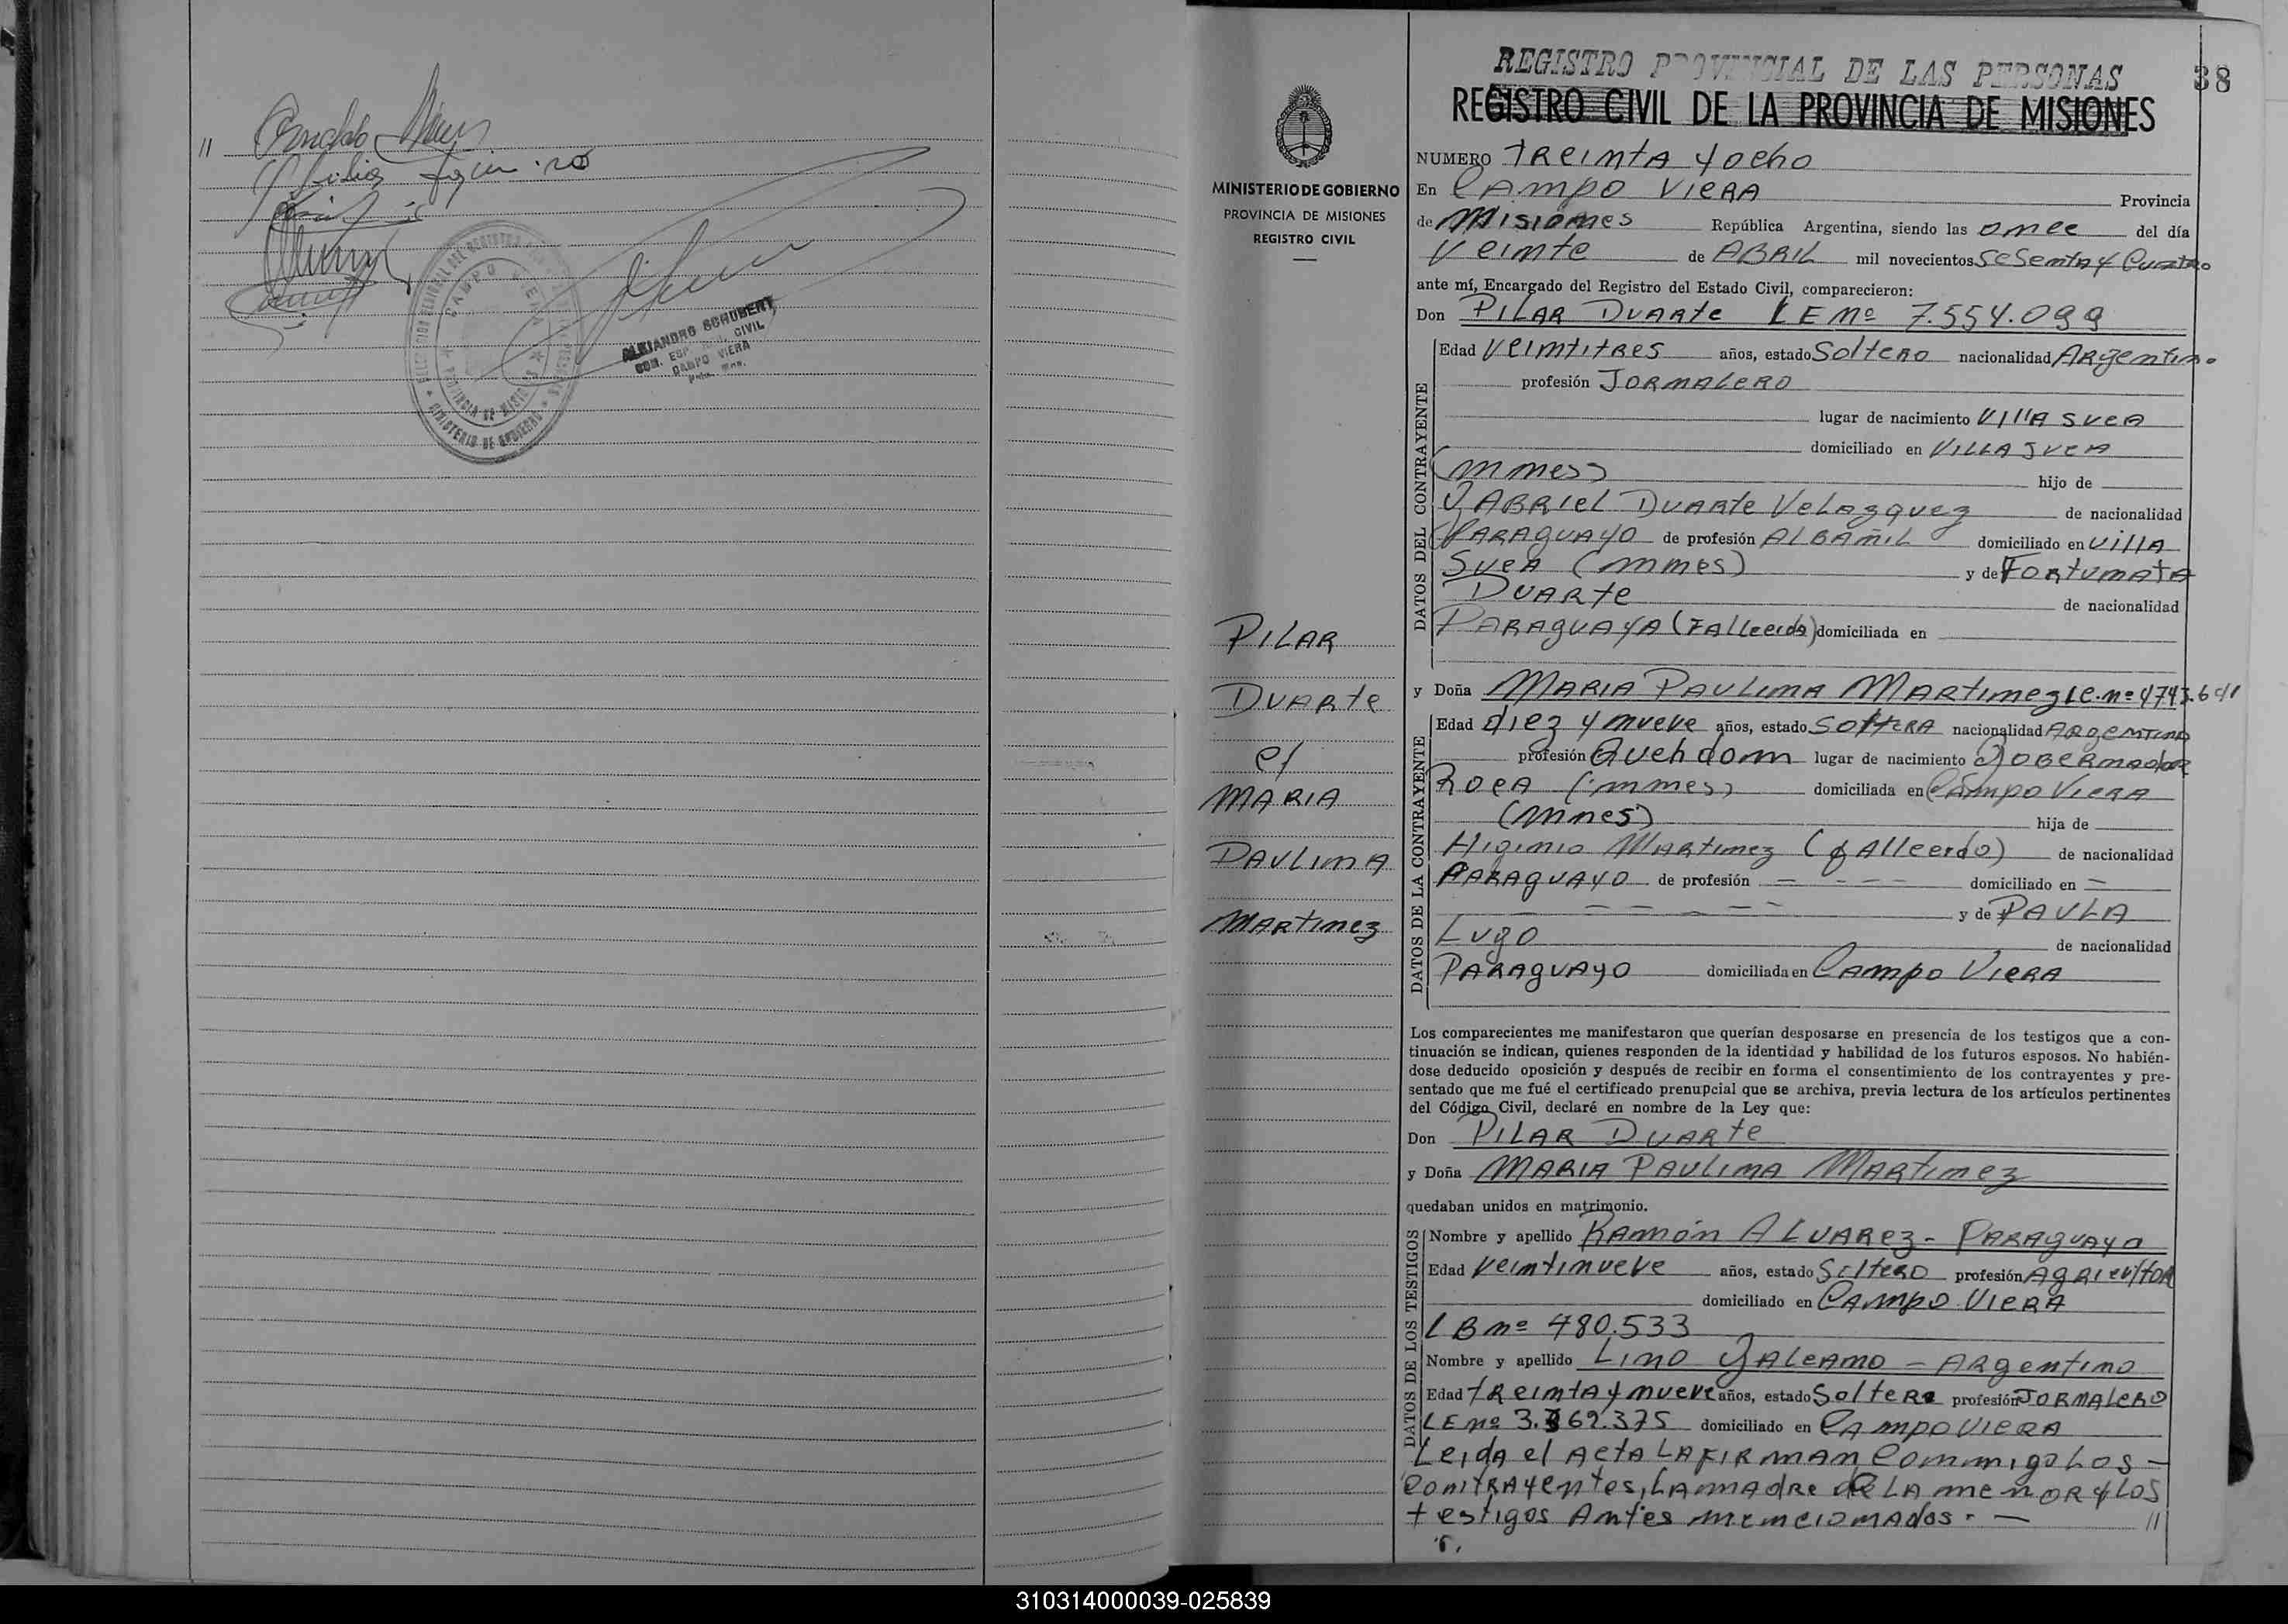 //
ALEJANDRO SCHUBERT
CIVIL
CAMPO VIERA
CAMPO VIERA
PROVINCIA DE MISIONES
MINISTERIO DE GOBIERNO
38
REGISTRO PROVINCIAL DE LAS PERSONAS
REGISTRO CIVIL DE LA PROVINCIA DE MISIONES
MINISTERIO DE GOBIERNO
PROVINCIA DE MISIONES
REGISTRO CIVIL
PILAR
DUARte
et
MARIA
PAULINA
MARtinez
NUMERO tReintA y ocho
En CAmpo VieRA Provincia
de Misiones República Argentina, siendo las once del día
Veinte de ABRIL mil novecientos SeSentA y CuAtro
ante mí, Encargado del Registro del Estado Civil, comparecieron:
Don PILAR DUARte LE Nº 7.554.099
DATOS DEL CONTRAYENTE
Edad Veintitres años, estado SolteRo nacionalidad ARgentino
profesión JORNALERO
lugar de nacimiento VillA SueCA
domiciliado en VILLA SueCA
(mnes) hijo de
GABRIEL DUARte VelAzquez de nacionalidad
PARAguAyo de profesión ALBAÑIL domiciliado en villA
SueCA (mnes) y de FoRtunAtA
DUARte de nacionalidad
PARAguAyA (FALLecida) domiciliada en
y Doña MARIA PAULINA MARtinez LC. nº 4743.641
DATOS DE LA CONTRAYENTE
Edad diez y nueve años, estado SolteRA nacionalidad ARgentinA
profesión Queh dom lugar de nacimiento GoBeRnAdoR
RocA (mnes) domiciliada en CAmpo VieRA
(mnes) hija de
Higinio MARtinez (fAllecido) de nacionalidad
PARAguAyo de profesión - - - - domiciliado en -
- - - - - - y de PAULA
Lugo de nacionalidad
PARAguAyo domiciliada en CAmpo VieRA
Los comparecientes me manifestaron que querían desposarse en presencia de los testigos que a con-
tinuación se indican, quienes responden de la identidad y habilidad de los futuros esposos. No habién-
dose deducido oposición y después de recibir en forma el consentimiento de los contrayentes y pre-
sentado que me fué el certificado prenupcial que se archiva, previa lectura de los artículos pertinentes
del Código Civil, declaré en nombre de la Ley que:
Don PILAR DUARte
y Doña MARIA PAULINA MARtinez
quedaban unidos en matrimonio.
DATOS DE LOS TESTIGOS
Nombre y apellido RAmón ALVARez - PARAguAyo
Edad Veintinueve años, estado SolteRo profesión AgRicultoR
domiciliado en CAmpo VieRA
L B nº 480.533
Nombre y apellido LINO GALeAno - ARgentino
Edad tReintA y nueve años, estado SolteRo profesión JoRnALeRo
LE nº 3.362.375 domiciliado en CAmpo VieRA
LeidA el ActA LA fiRmAn Conmigo Los -
ContRAyentes, LA mAdRe de LA menoR y Los
testigos Antes mencionAdos. - //
310314000039-025839